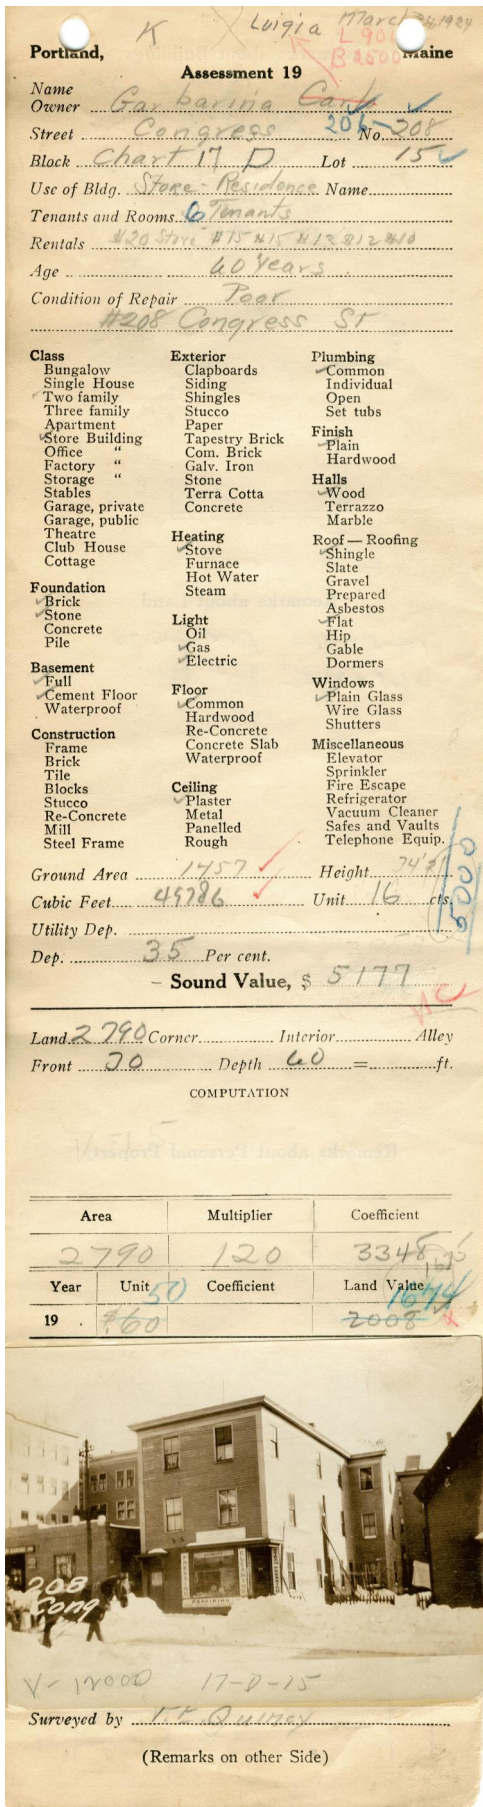 K Luigia March 24, 1924
L 900
B 2500
Portland, Maine
Assessment 19
Name
Owner Garbarina Carlo
Street Congress 206- No. 208
Block Chart 17 D Lot 15
Use of Bldg. Store - Residence Name
Tenants and Rooms 6 Tenants
Rentals #20 Store #15 #15 #13 #12 #10
Age 60 Years
Condition of Repair Poor
#208 Congress St
Class
Bungalow
Single House
Two family
Three family
Apartment
Store Building
Office "
Factory "
Storage "
Stables
Garage, private
Garage, public
Theatre
Club House
Cottage
Foundation
Brick
Stone
Concrete
Pile
Basement
Full
Cement Floor
Waterproof
Construction
Frame
Brick
Tile
Blocks
Stucco
Re-Concrete
Mill
Steel Frame
Exterior
Clapboards
Siding
Shingles
Stucco
Paper
Tapestry Brick
Com. Brick
Galv. Iron
Stone
Terra Cotta
Concrete
Heating
Stove
Furnace
Hot Water
Steam
Light
Oil
Gas
Electric
Floor
Common
Hardwood
Re-Concrete
Concrete Slab
Waterproof
Ceiling
Plaster
Metal
Panelled
Rough
Plumbing
Common
Individual
Open
Set tubs
Finish
Plain
Hardwood
Halls
Wood
Terrazzo
Marble
Roof — Roofing
Shingle
Slate
Gravel
Prepared
Asbestos
Flat
Hip
Gable
Dormers
Windows
Plain Glass
Wire Glass
Shutters
Miscellaneous
Elevator
Sprinkler
Fire Escape
Refrigerator
Vacuum Cleaner
Safes and Vaults
Telephone Equip.
Ground Area 1457 Height
Cubic Feet 49786 Unit 16 cts.
5000
Utility Dep.
Dep. 35 Per cent.
Sound Value, $ 5177
Land 2790 Corner Interior Alley
Front 30 Depth 60 = ft.
COMPUTATION
Area Multiplier Coefficient
2790 120 3348
1675
Year Unit Coefficient Land Value
50 1674
19 . .60 2008
208
Cong
REPAIRING
V- 12000 17-D-15
Surveyed by Quincy
(Remarks on other Side)